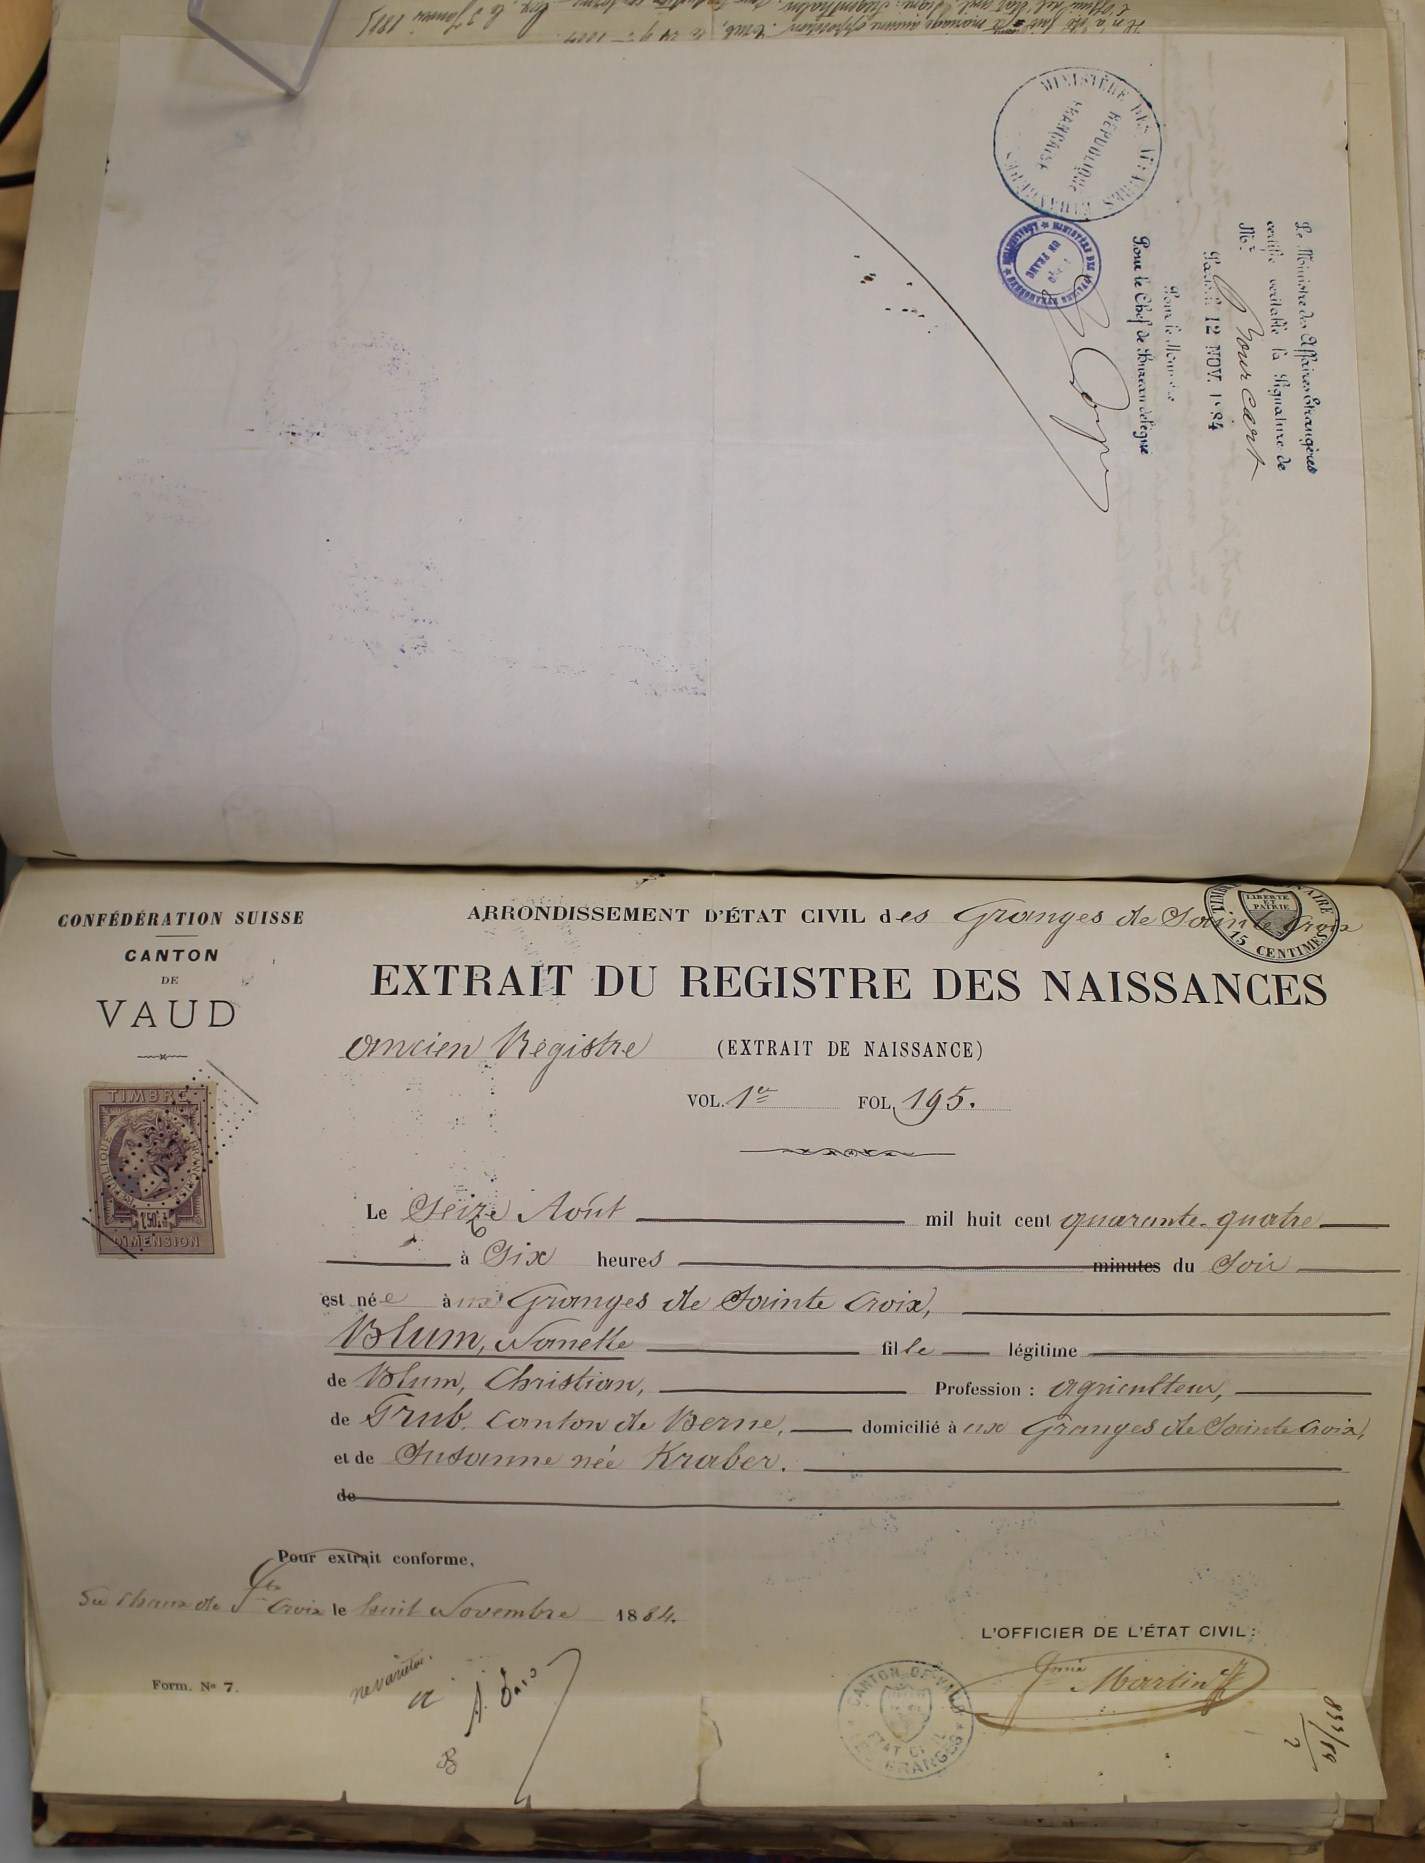 MINISTÈRE DES AFFAIRES ETRANGÈRES
RÉPUBLIQUE
FRANÇAISE
Le Ministre des Affaires Étrangères
certifie véritable la Signature de
Mr Bourcart
Paris, le 12 NOV. 1884
Pour le Ministre
Pour le Chef de Bureau délégué
CONFÉDÉRATION SUISSE
CANTON
DE
VAUD
ARRONDISSEMENT D'ÉTAT CIVIL des Granges de Sainte Croix
LIBERTÉ
ET
PATRIE
15 CENTIMES
EXTRAIT DU REGISTRE DES NAISSANCES
ancien Régistre (EXTRAIT DE NAISSANCE)
VOL. 1er FOL. 195.
TIMBRE
DIMENSION
Le Seize Août mil huit cent quarante-quatre
à Six heures minutes du Soir
est née aux Granges de Sainte Croix,
Blum, Nanette fille légitime
de Blum, Christian, Profession : agriculteur,
de Trub, Canton de Berne, domicilié à ux Granges de Sainte Croix,
et de Susanne née Kraber.
de
Pour extrait conforme,
Croix le huit Novembre 1884.
L'OFFICIER DE L'ÉTAT CIVIL :
Martin
Form. No 7.
ne varietur.
CANTON DE VAUD
ETAT CIVIL
GRANGES